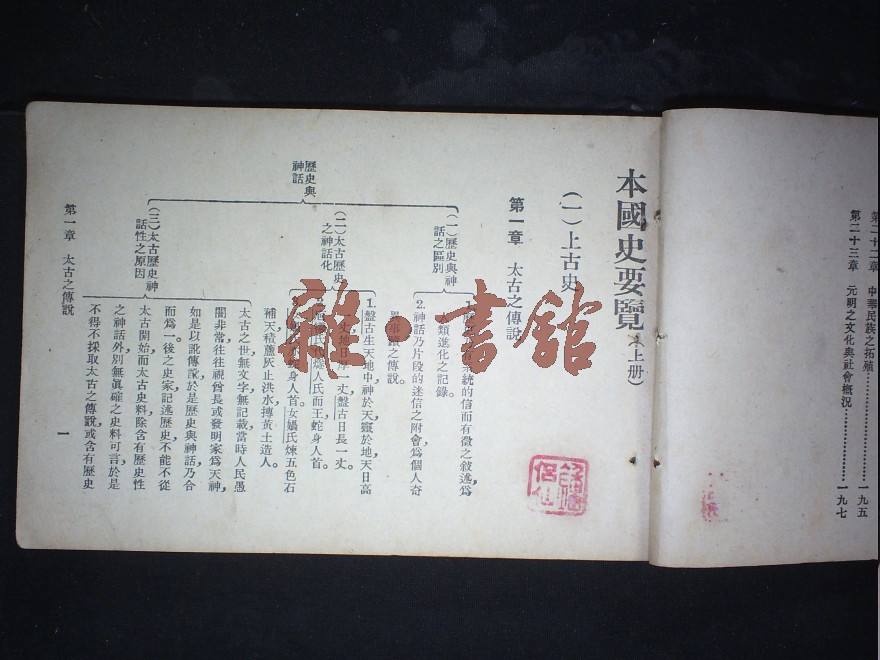 第二十二章 中華民族之拓殖……………一九五
第二十三章 元明之文化與社會概況……………一九七
本國史要覽(上册)
(一)上古史
第一章 太古之傳說
歷史與
神話
(一)歷史與神
話之區別
系統的信而有徵之敘述爲
類進化之記錄。
2.神話乃片段的迷信之附會爲個人奇
之傳說。
(二)太古歷史
之神話化
1.盤古生天地中,神於天靈於地,天日高
一丈,地日厚一丈,盤古日長一丈。
氏代燧人氏而王,蛇身人首。
蛇身人首,女媧氏煉五色石
補天,積蘆灰止洪水,摶黃土造人。
(三)太古歷史神
話性之原因
太古之世無文字,無記載,當時人民愚
闇非常,往往視酋長或發明家爲天神,
如是以訛傳訛,於是歷史與神話乃合
而爲一。後之史家,記述歷史,不能不從
太古開始,而太古史料,除含有歷史性
之神話外,別無眞確之史料可言,於是
不得不採取太古之傳說,或含有歷史
第一章 太古之傳說
一
雜·書館